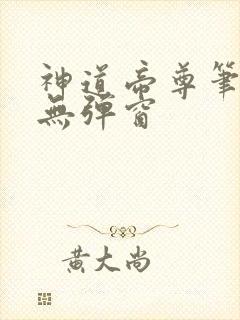 神道帝尊筆
無彈窗
黃大尚